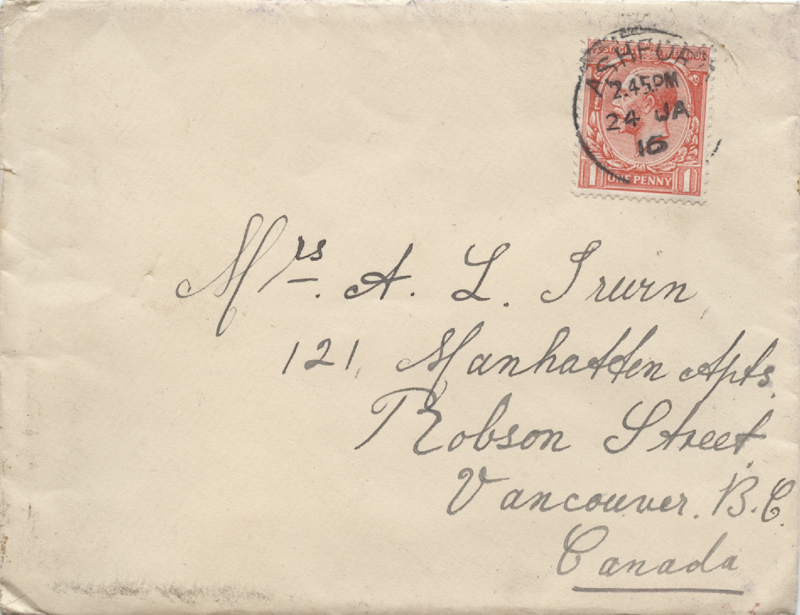 ASHFORD
2.45PM
24 JA
16
1 ONE PENNY 1
Mrs. A. L. Irwin
121, Manhatten Apts.
Robson Street.
Vancouver. B.C.
Canada